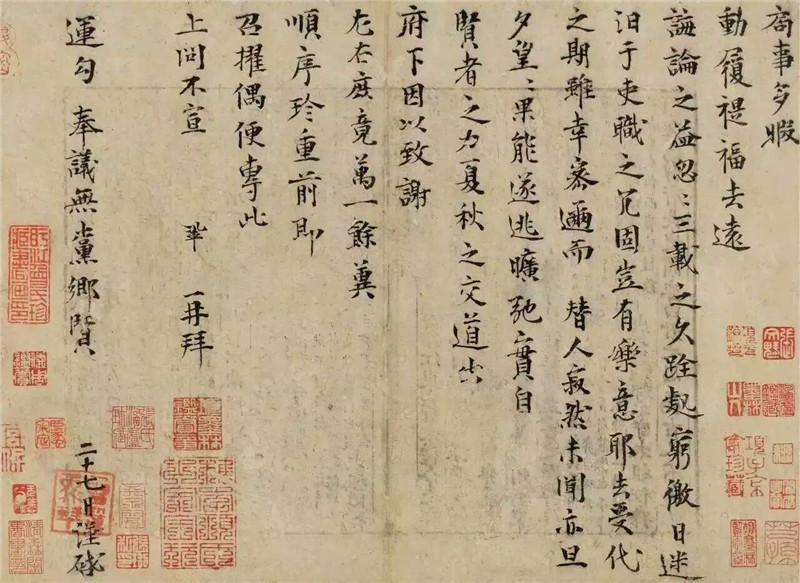 局事多暇
動履禔福去遠
誨論之益忽〻三載之久跧處窮徼日迷
汩于吏職之冗固豈有樂意耶去受代
之期雖幸密邇而替人寂然未聞亦旦
夕望〻果能遂逃曠弛實自
賢者之力夏秋之交道出
府下因以致謝
左右庶竟萬一餘冀
順序珍重前即
召擢偶便專此
上問不宣 鞏 再拜
運勾奉議無黨鄉賢 二十七日謹啟
項子京家珍藏